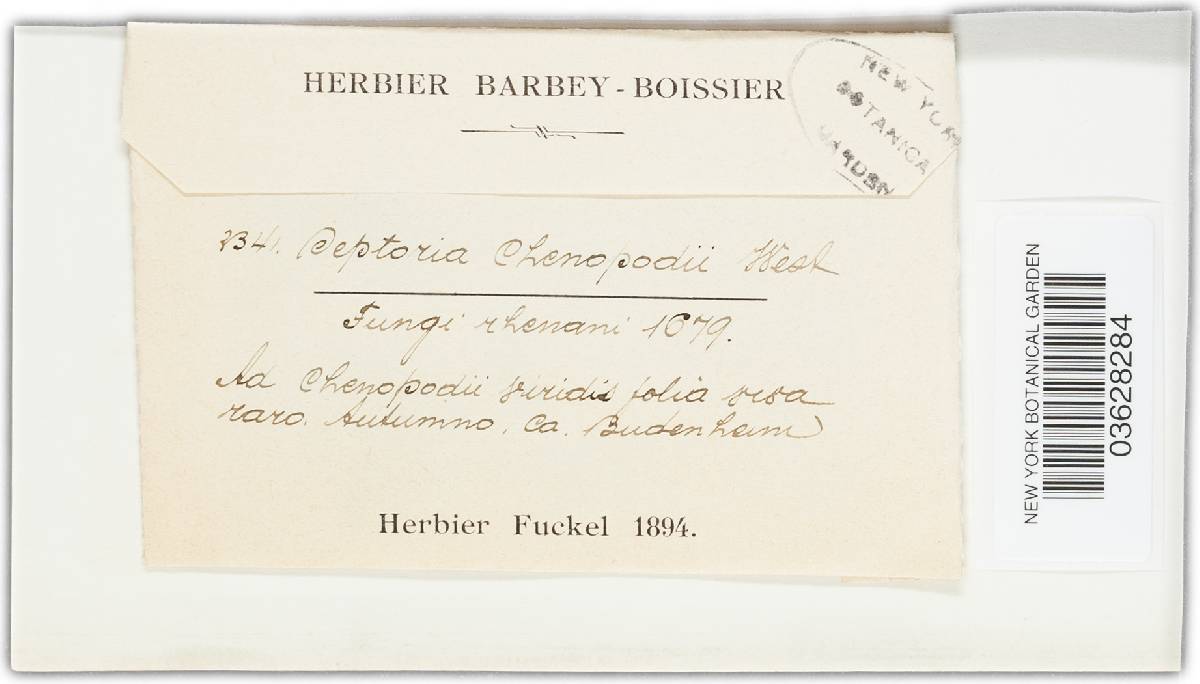 HERBIER BARBEY-BOISSIER
NEW YORK
BOTANICA
GARDEN
234. Septoria Chenopodii West
Fungi rhenani 1679.
Ad Chenopodii viridis folia viva
raro. Autumno. Ca. Budenheim
Herbier Fuckel 1894.
NEW YORK BOTANICAL GARDEN
03628284